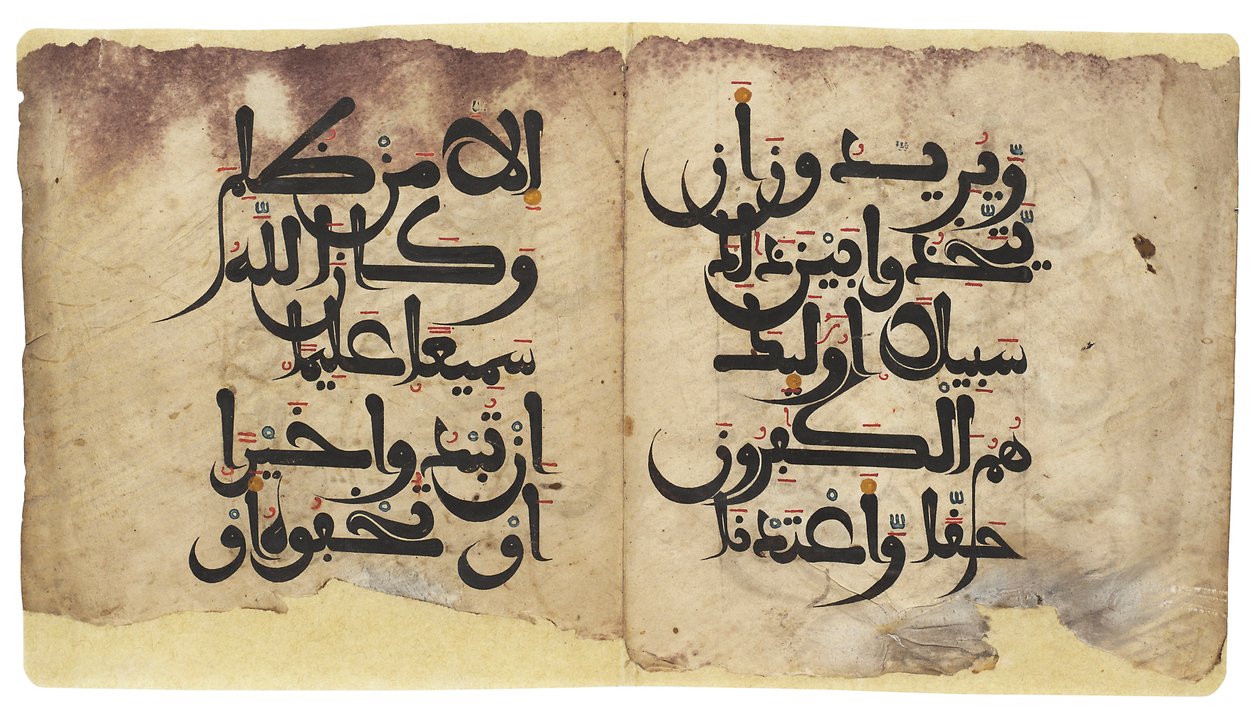 وَيُرِيدُونَ أَن
يَّتَّخِذُوا بَيْنَ ذَلِكَ
سَبِيلًا أُولَئِكَ
هُمُ الْكَفِرُونَ
حَقًّا وَّأَعْتَدْنَا
إِلَّا مَن ظُلِمَ
وَكَانَ اللَّهُ
سَمِيعًا عَلِيمًا
إِن تُبْدُوا خَيْرًا
أَوْ تُخْفُوهُ أَوْ